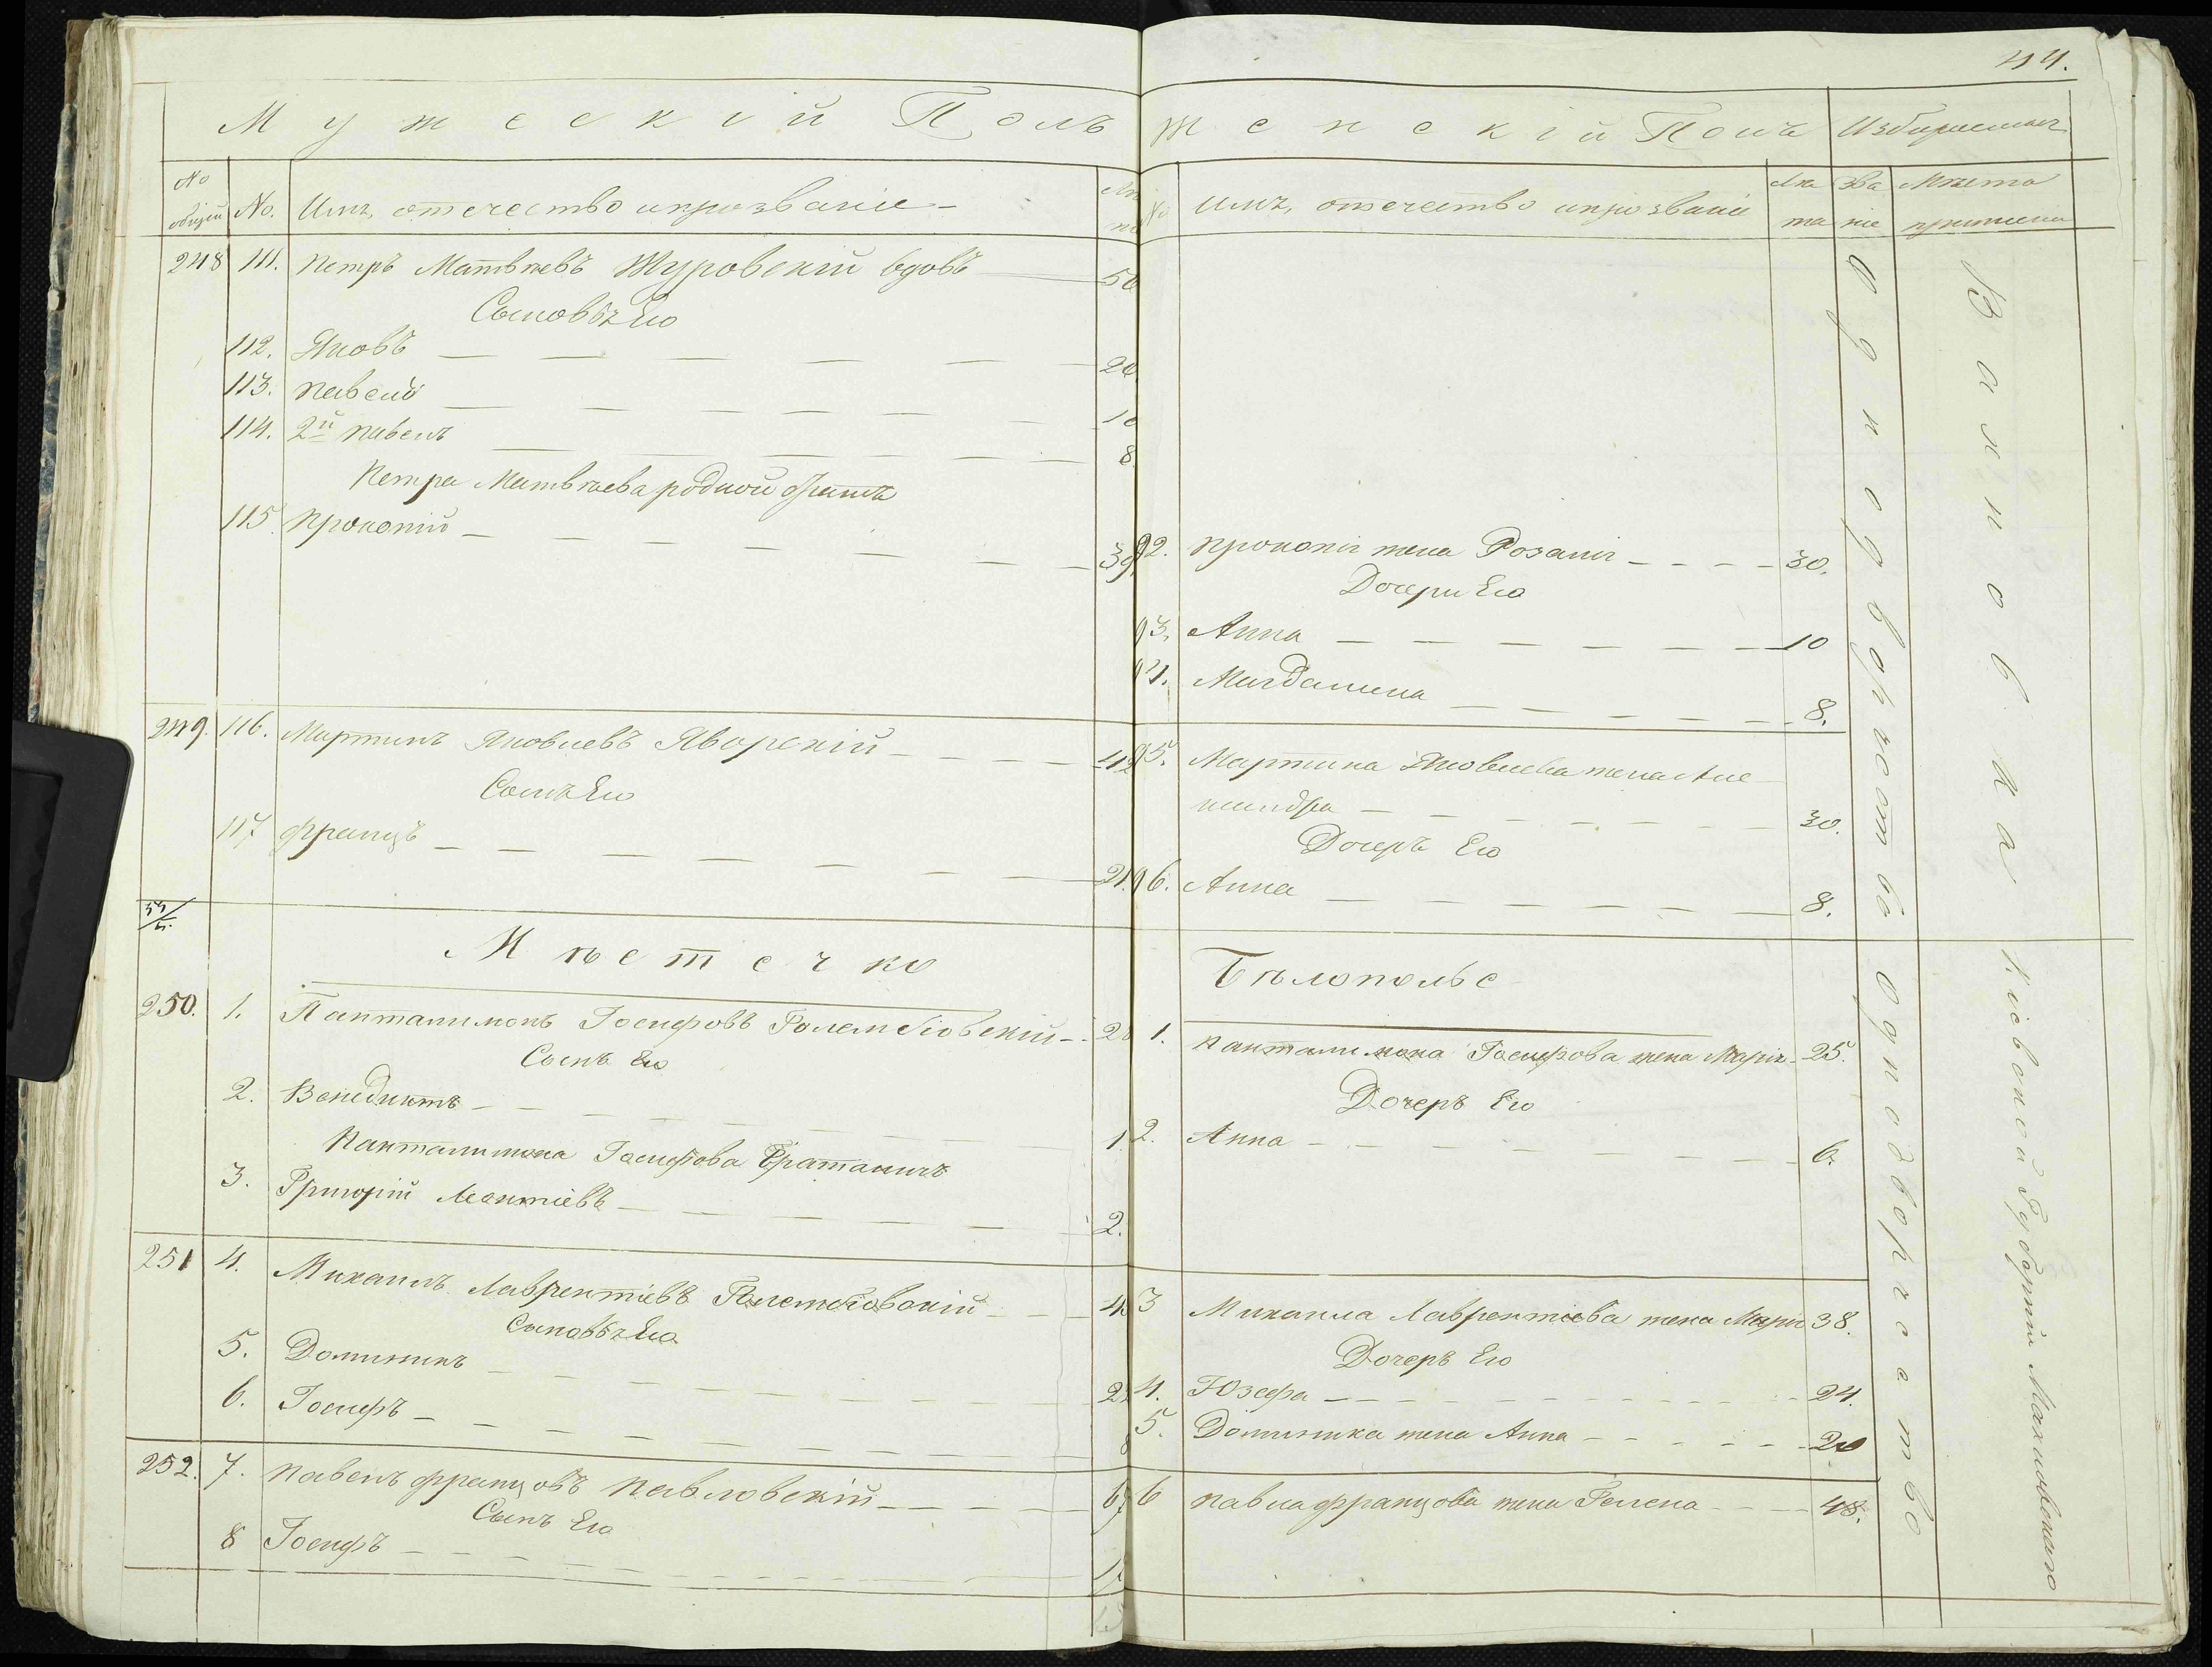 44.
Мужескій Полъ
№ общій
№.
Имя, отечество и прозваніе
248 111. Петръ Матвѣевъ Журовскій вдовъ 50
Сыновья Его
112. Яковъ 20
113. Павелъ 10
114. 2й Павелъ 8.
Петра Матвѣева родной братъ
115 Прокопій 39.
249. 116. Мартинъ Яковлевъ Яворскій 42
Сынъ Его
117 Францъ 21.
Мѣстечко
250. 1. Панталимонъ Іосифовъ Голембіовскій
Сынъ Его
2. Венедиктъ 1
Панталимона Іосифова Братаничъ
3. Григорій Леонтіевъ 2.
251 4. Михаилъ Лаврентіевъ Голембіовскій
Сыновья Его
5. Доминикъ
6. Іосифъ
252. 7. Павелъ Францовъ Павловскій
Сынъ Его
8 Іосифъ
Женскій Полъ
Избираемыя
№
Имя, отечество и прозваніе
Лѣта
Званіе
Мѣсто
92. Прокопія жена Розалія 30.
Дочери Его
93. Анна 10
94. Магдалина 8.
95. Мартина Яковлева жена Але
ксандра 30.
Дочеръ Его
96. Анна 8.
Бѣлополье
1. Панталимона Іосифова жена Марія 25.
Дочеръ Его
2. Анна 6.
3 Михаила Лаврентіева жена Марія 38.
Дочеръ Его
4. Юзефа 24.
5. Доминика жена Анна 20
6 Павла Францова жена Гелена 48.
Однодворчество
Вахновка
Однодворчество
Кіевской Губерніи Махновскаго